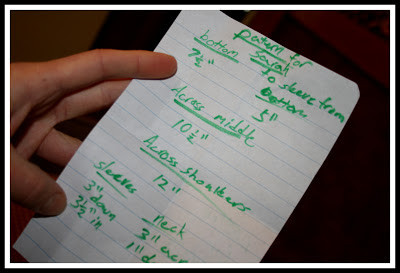 patern for
Sarah
bottom
7½"
to sleeve from
bottom
5"
Across middle
10½"
Across shoulders
12"
sleeves
3"
down
3½"
in
neck
3" over
1" d